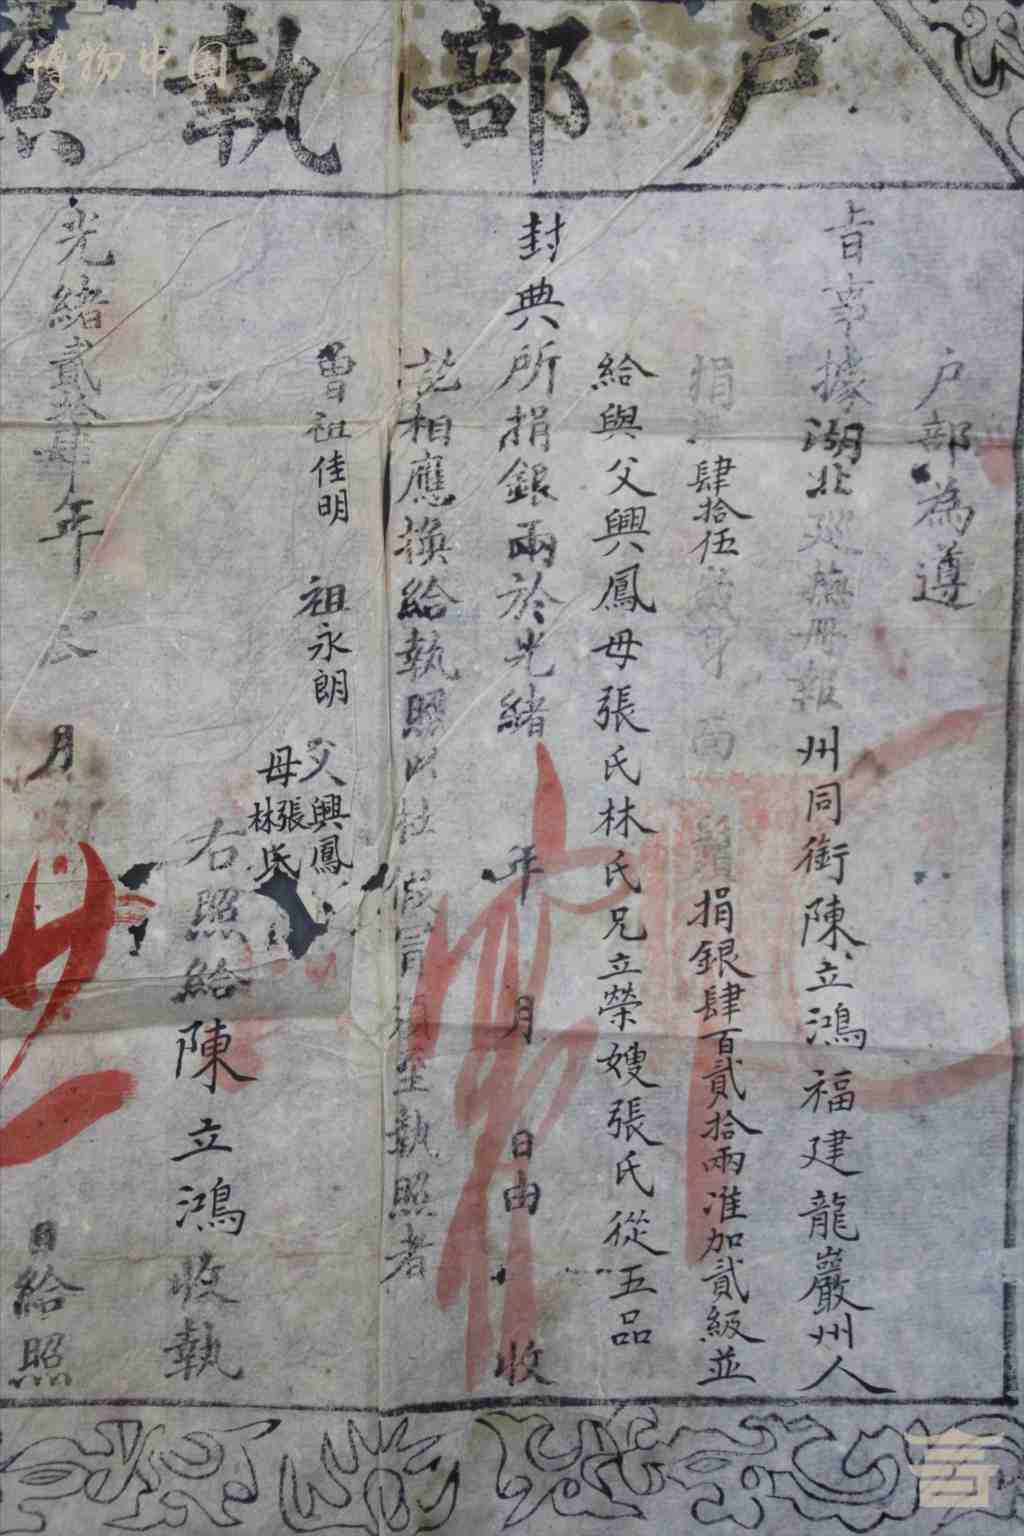 戶部執照
戶部為遵
旨事據湖北巡撫冊報州同銜陳立鴻福建龍巖州人
捐 肆拾伍歲身 面 鬚捐銀肆百貳拾兩准加貳級並
給與父興鳳母張氏林氏兄立榮嫂張氏從五品
封典所捐銀兩於光緒 年 月 日由 收
訖相應換給執照以杜假冒須至執照者
曾祖佳明 祖永朗 父興鳳 母張林氏
右照給陳立鴻收執
光緒貳拾肆年 月 日給照
博物中国